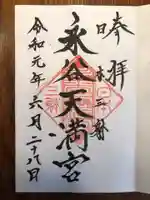 奉拝
日本三躰
永谷天満宮
令和元年六月二十八日